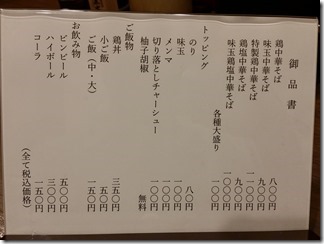 御品書
鶏中華そば 八〇〇円
味玉中華そば 九〇〇円
特製鶏中華そば
鶏塩中華そば 九〇〇円
味玉鶏塩中華そば
各種大盛り 一〇〇円
トッピング
のり 八〇円
味玉 一〇〇円
メンマ 一〇〇円
切り落としチャーシュー 一〇〇円
柚子胡椒 無料
ご飯物
鶏丼 三五〇円
小ご飯
ご飯（中・大） 一五〇円
お飲み物
ビンビール 五〇〇円
ハイボール 三〇〇円
コーラ 一五〇円
（全て税込価格）